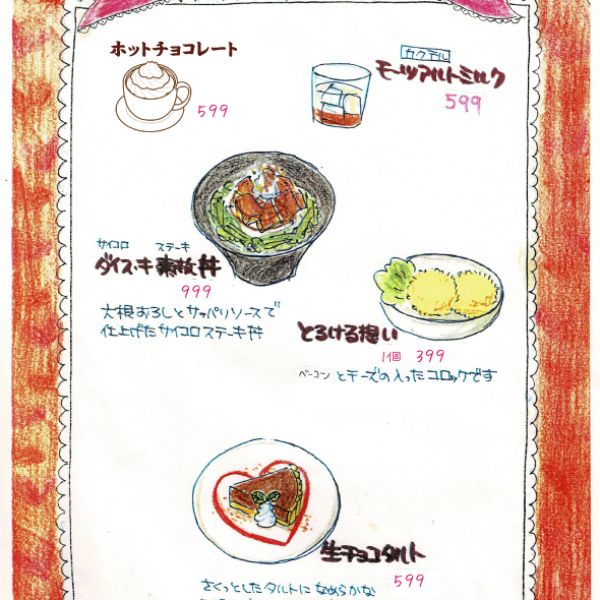 ホットチョコレート
599
カクテル
モーツアルトミルク
599
サイコロ ステーキ
ダイス・キ素敵丼
999
大根おろしとサッパリソースで
仕上げたサイコロステーキ丼
とろける想い
1個 399
ベーコン とチーズの入ったコロッケです
生チョコタルト
599
さくっとしたタルトになめらかな